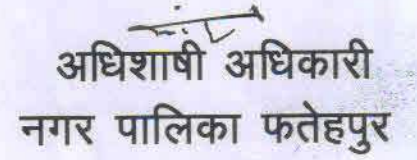 अधिशाषी अधिकारी
नगर पालिका फतेहपुर